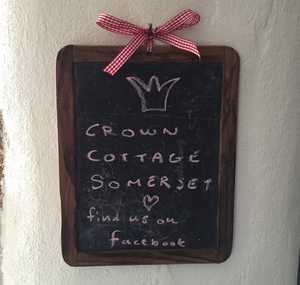 CROWN
COTTAGE
SOMERSET
find us on
facebook